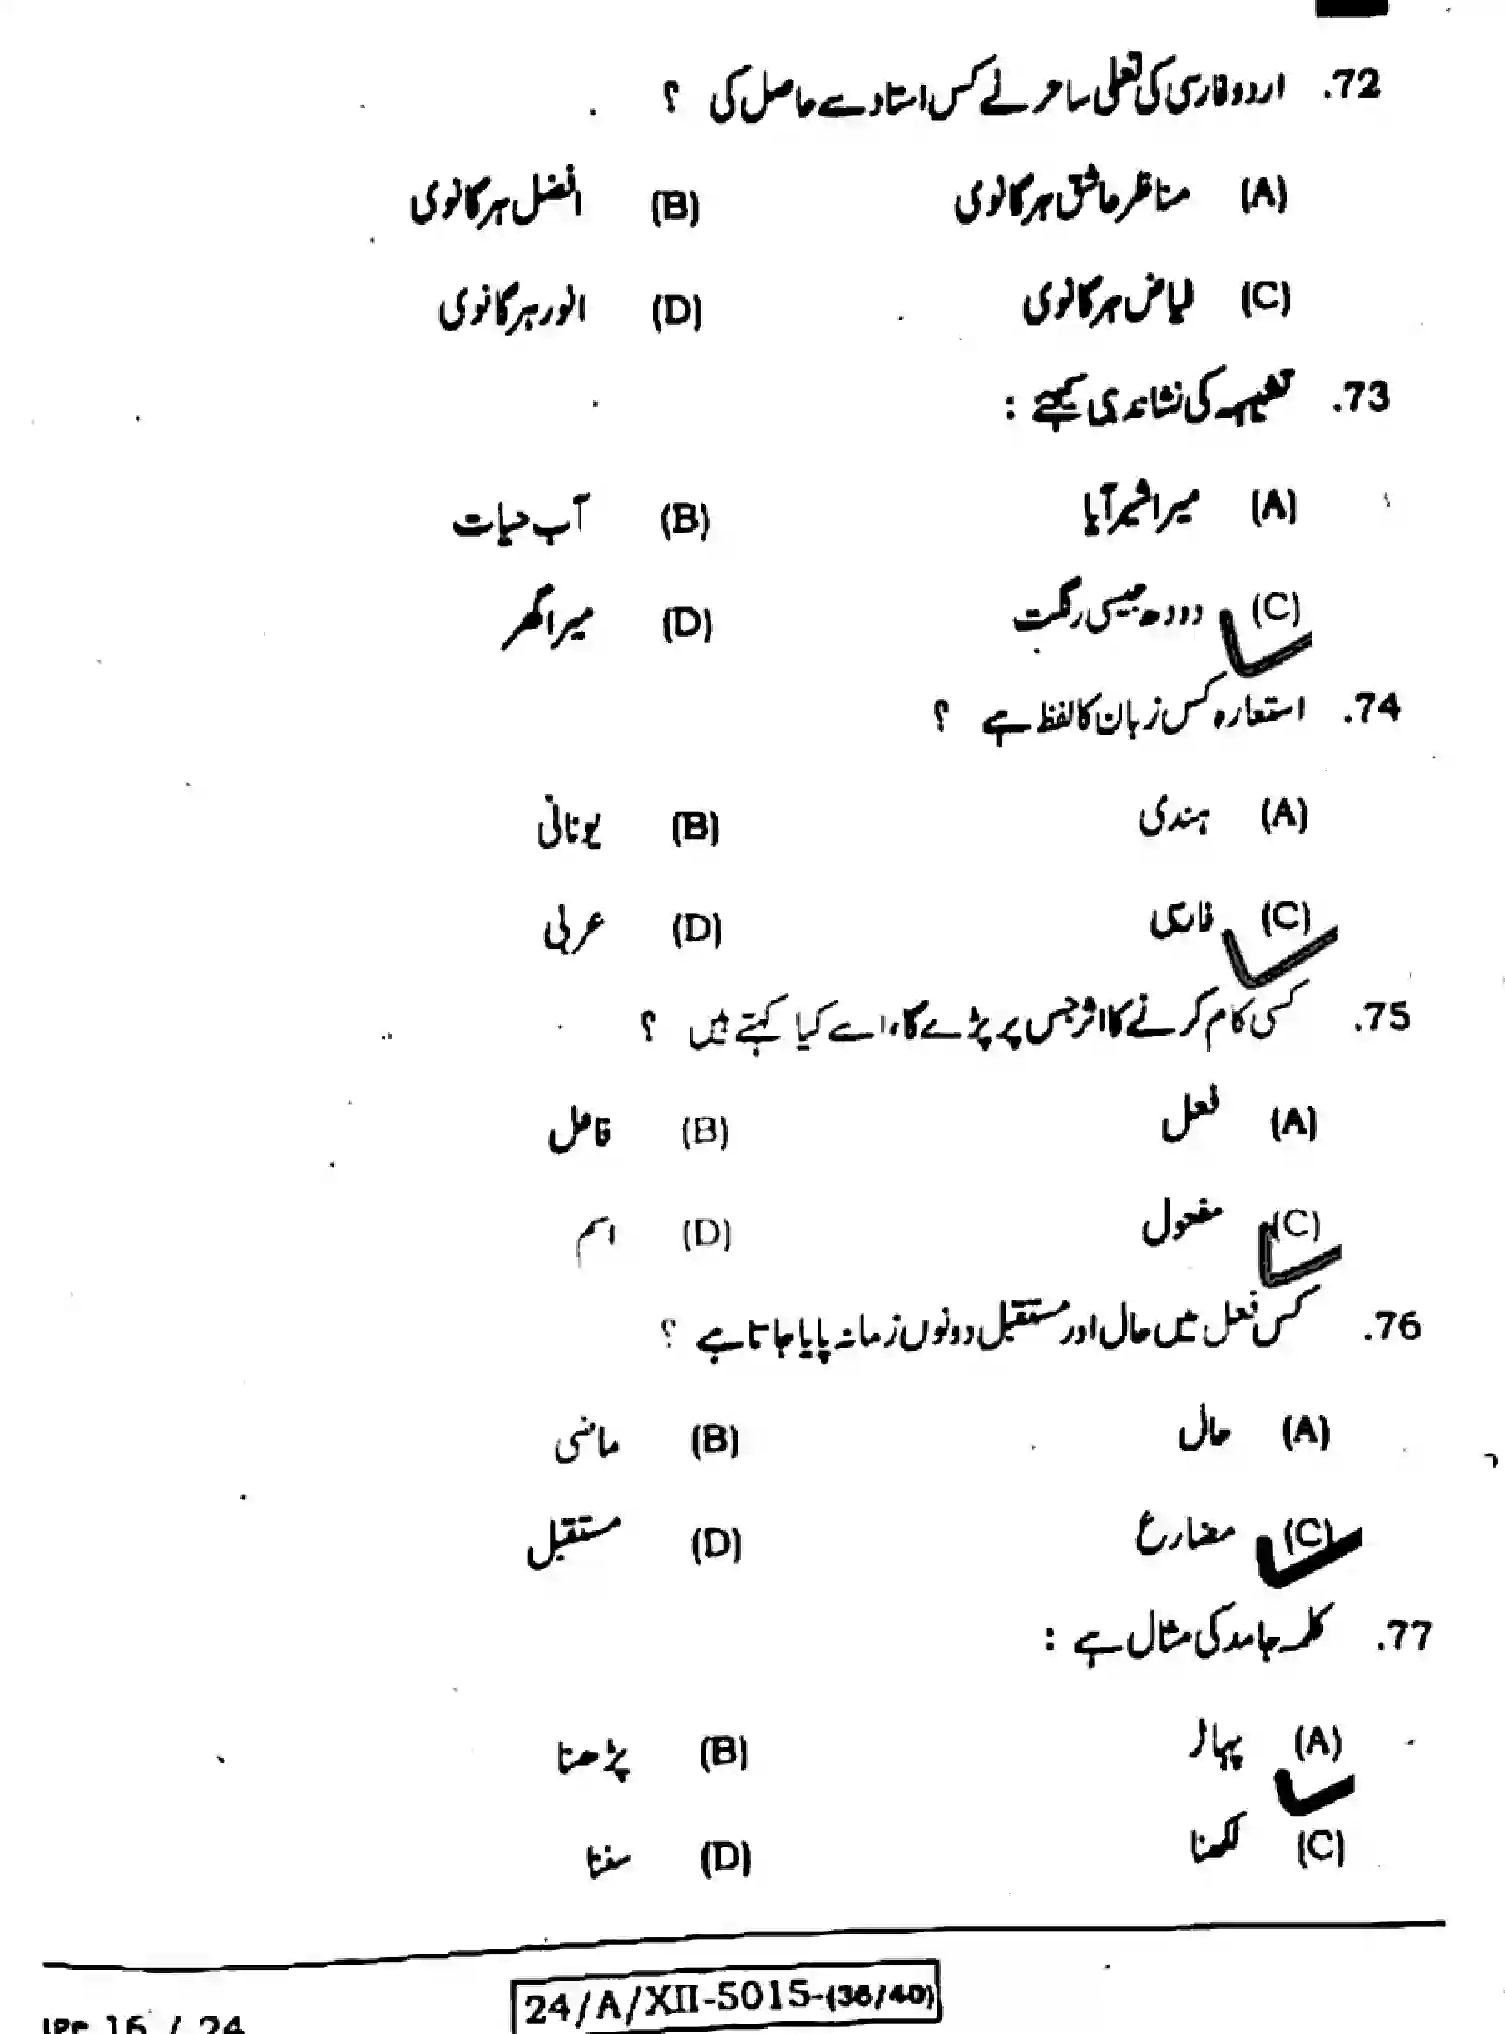 72. اردو فارسی کی تعلیم ساحر نے کس استاد سے حاصل کی ؟
(A) مناظر عاشق ہرگانوی (B) افضل ہرگانوی
(C) فیاض ہرگانوی (D) انور ہرگانوی
73. تشبیہہ کی نشاندی کیجئے :
(A) میرا شیر آیا (B) آب حیات
(C) دودھ جیسی رنگت (D) میرا گھر
74. استعارہ کس زبان کا لفظ ہے ؟
(A) ہندی (B) یونانی
(C) فارسی (D) عربی
75. کسی کام کرنے کا اثر جس پر پڑے گا، اسے کیا کہتے ہیں ؟
(A) فعل (B) فاعل
(C) مفعول (D) اسم
76. کس فعل میں حال اور مستقبل دونوں زمانہ پایا جاتا ہے ؟
(A) حال (B) ماضی
(C) مضارع (D) مستقبل
77. کلمہ جامد کی مثال ہے :
(A) پہاڑ (B) پڑھنا
(C) لکھنا (D) سننا
24/A/XII-5015-(36/40)
16 / 24